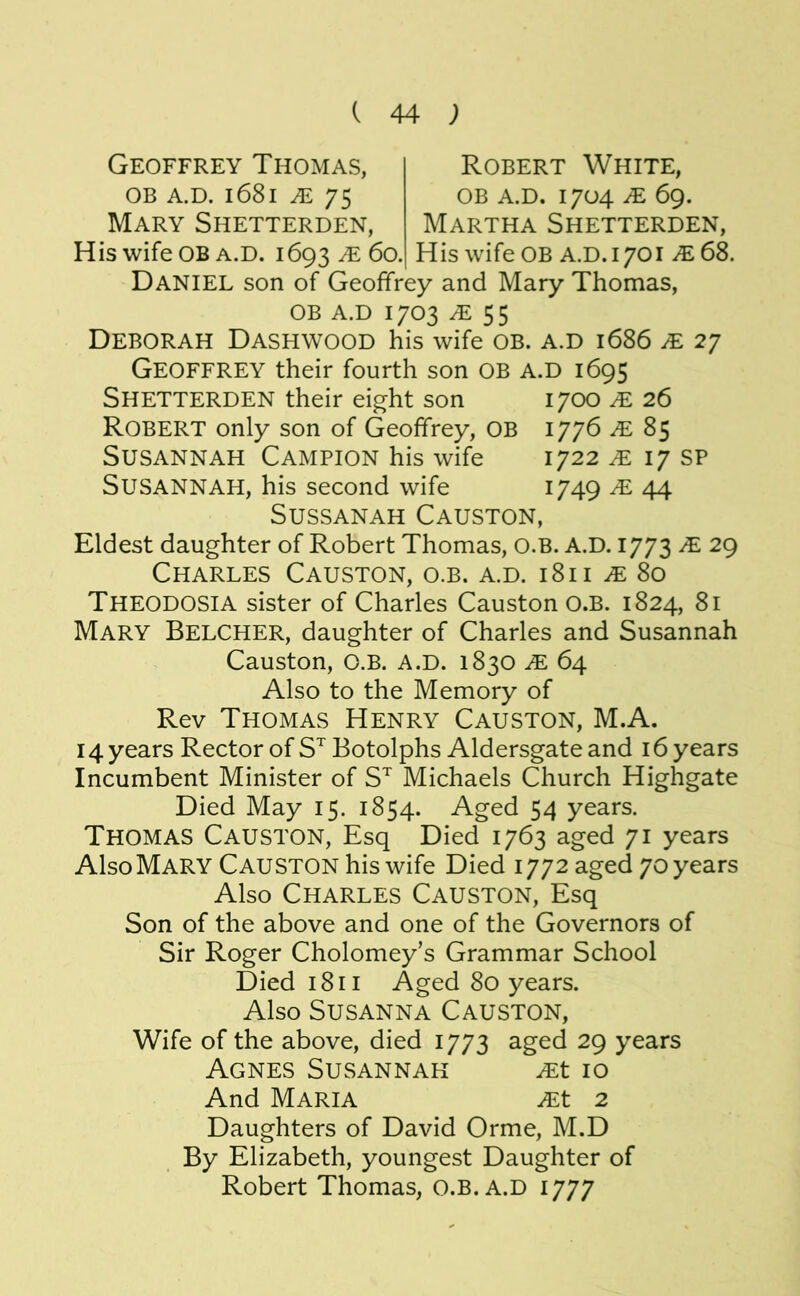 ( 44 )
GEOFFREY THOMAS,
OB A.D. 1681 Æ 75
MARY SHETTERDEN,
His wife OB A.D. 1693 Æ 60.
ROBERT WHITE,
OB A.D. 1704 Æ 69.
MARTHA SHETTERDEN,
His wife OB A.D. 1701 Æ 68.
DANIEL son of Geoffrey and Mary Thomas,
OB A.D 1703 Æ 55
DEBORAH DASHWOOD his wife OB. A.D 1686 Æ 27
GEOFFREY their fourth son OB A.D 1695
SHETTERDEN their eight son 1700 Æ 26
ROBERT only son of Geoffrey, OB 1776 Æ 85
SUSANNAH CAMPION his wife 1722 Æ 17 SP
SUSANNAH, his second wife 1749 Æ 44
SUSSANAH CAUSTON,
Eldest daughter of Robert Thomas, O.B. A.D. 1773 Æ 29
CHARLES CAUSTON, O.B. A.D. 1811 Æ 80
THEODOSIA sister of Charles Causton O.B. 1824, 81
MARY BELCHER, daughter of Charles and Susannah
Causton, O.B. A.D. 1830 Æ 64
Also to the Memory of
Rev THOMAS HENRY CAUSTON, M.A.
14 years Rector of Sᵀ Botolphs Aldersgate and 16 years
Incumbent Minister of Sᵀ Michaels Church Highgate
Died May 15. 1854. Aged 54 years.
THOMAS CAUSTON, Esq Died 1763 aged 71 years
Also MARY CAUSTON his wife Died 1772 aged 70 years
Also CHARLES CAUSTON, Esq
Son of the above and one of the Governors of
Sir Roger Cholomey's Grammar School
Died 1811 Aged 80 years.
Also SUSANNA CAUSTON,
Wife of the above, died 1773 aged 29 years
AGNES SUSANNAH Æt 10
And MARIA Æt 2
Daughters of David Orme, M.D
By Elizabeth, youngest Daughter of
Robert Thomas, O.B. A.D 1777